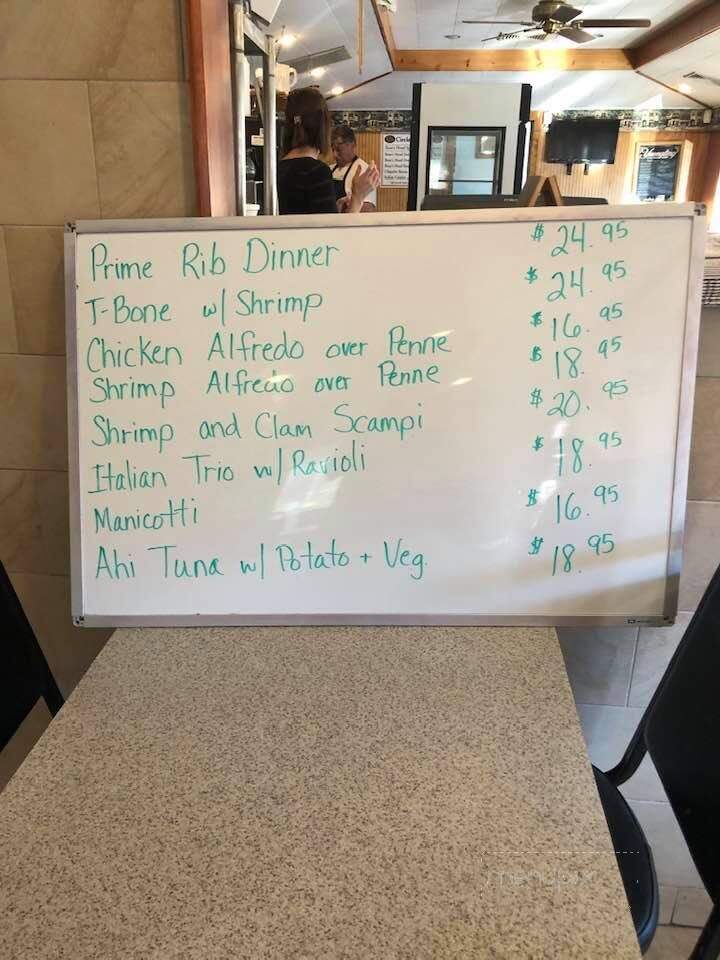 Prime Rib Dinner $24.95
T-Bone w/ Shrimp $24.95
Chicken Alfredo over Penne $16.95
Shrimp Alfredo over Penne $18.95
Shrimp and Clam Scampi $20.95
Italian Trio w/ Ravioli $18.95
Manicotti $16.95
Ahi Tuna w/ Potato + Veg. $18.95